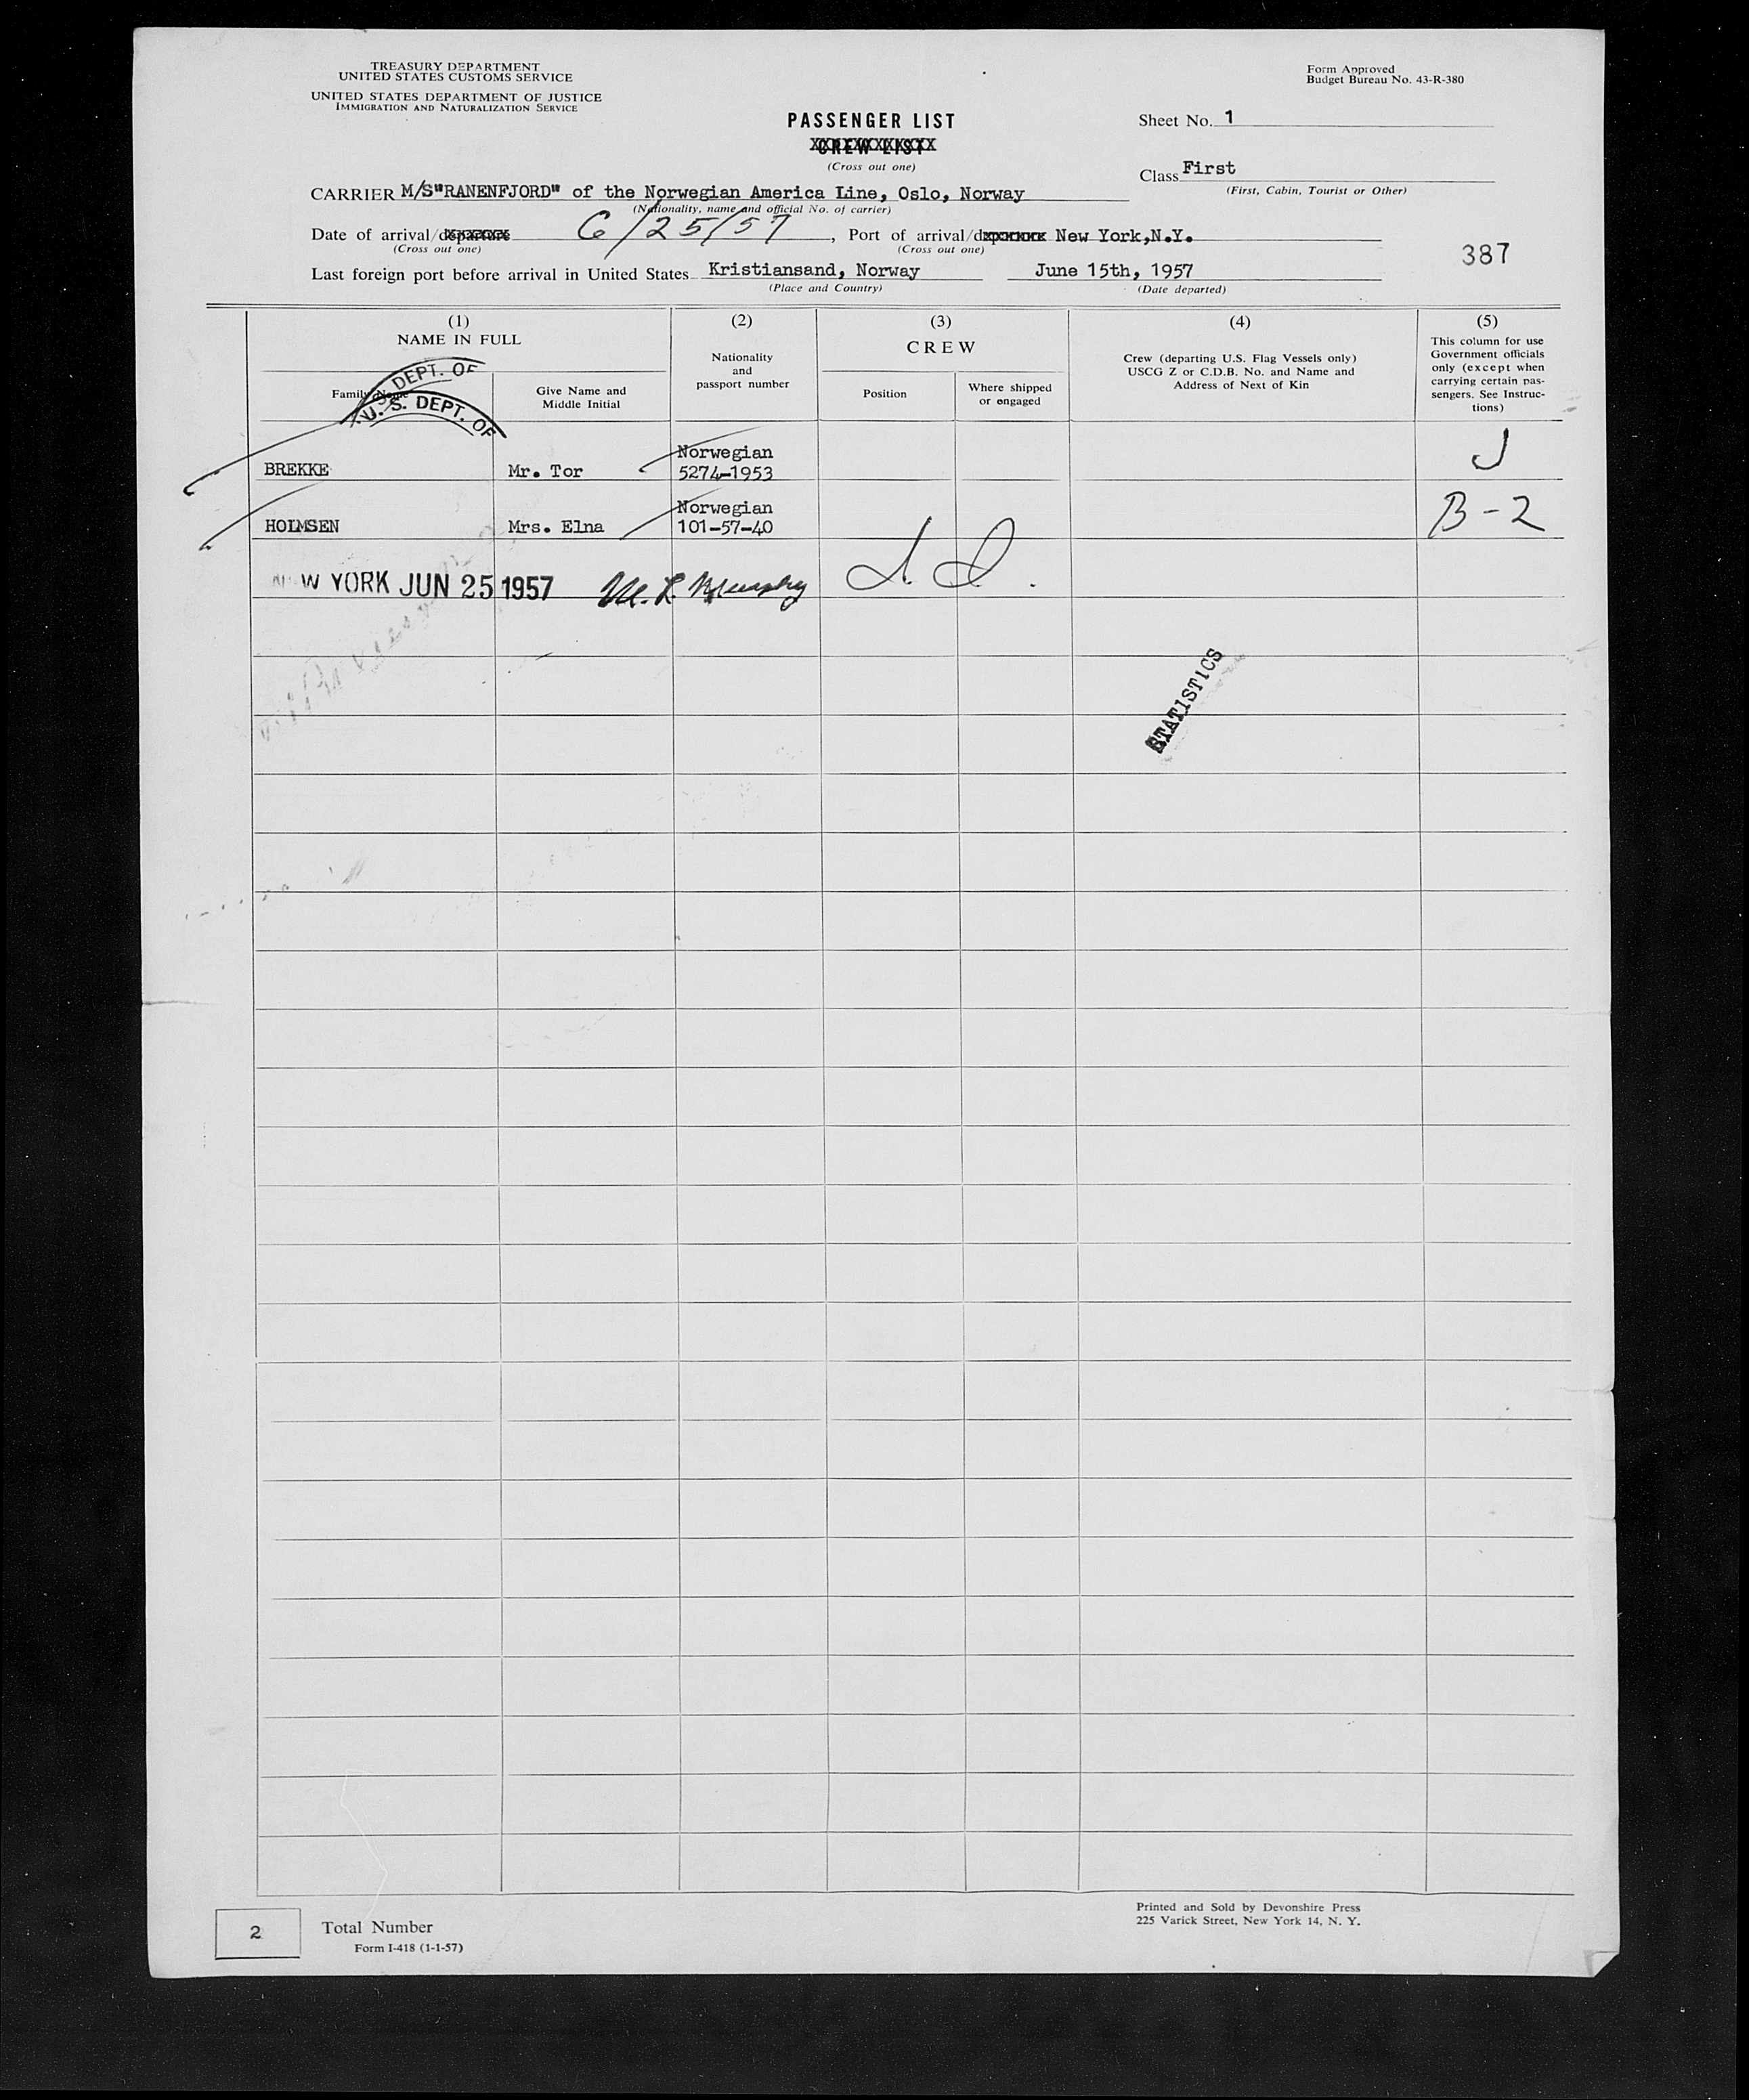 TREASURY DEPARTMENT
UNITED STATES CUSTOMS SERVICE
UNITED STATES DEPARTMENT OF JUSTICE
IMMIGRATION AND NATURALIZATION SERVICE
Form Approved
Budget Bureau No. 43-R-380
PASSENGER LIST
CREW LIST
(Cross out one)
Sheet No. 1
Class First
(First, Cabin, Tourist or Other)
CARRIER M/S"RANENFJORD" of the Norwegian America Line, Oslo, Norway
(Nationality, name and official No. of carrier)
Date of arrival/departure 6/25/57, Port of arrival/d New York,N.Y.
(Cross out one) (Cross out one)
387
Last foreign port before arrival in United States Kristiansand, Norway June 15th, 1957
(Place and Country) (Date departed)
(1) (2) (3) (4) (5)
NAME IN FULL
Family Name
Give Name and
Middle Initial
Nationality
and
passport number
CREW
Position
Where shipped
or engaged
Crew (departing U.S. Flag Vessels only)
USCG Z or C.D.B. No. and Name and
Address of Next of Kin
This column for use
Government officials
only (except when
carrying certain pas-
sengers. See Instruc-
tions)
DEPT. OF
U. S. DEPT. OF
BREKKE Mr. Tor Norwegian
5274-1953
J
HOLMSEN Mrs. Elna Norwegian
101-57-40
B-2
W YORK JUN 25 1957 M. L. Murphy
STATISTICS
2 Total Number
Form I-418 (1-1-57)
Printed and Sold by Devonshire Press
225 Varick Street, New York 14, N. Y.